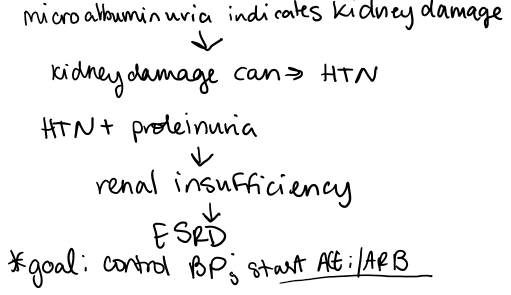 microalbuminuria indicates kidney damage
↓
kidney damage can → HTN
HTN + proteinuria
↓
renal insufficiency
↓
ESRD
*goal: control BP; start ACEi/ARB